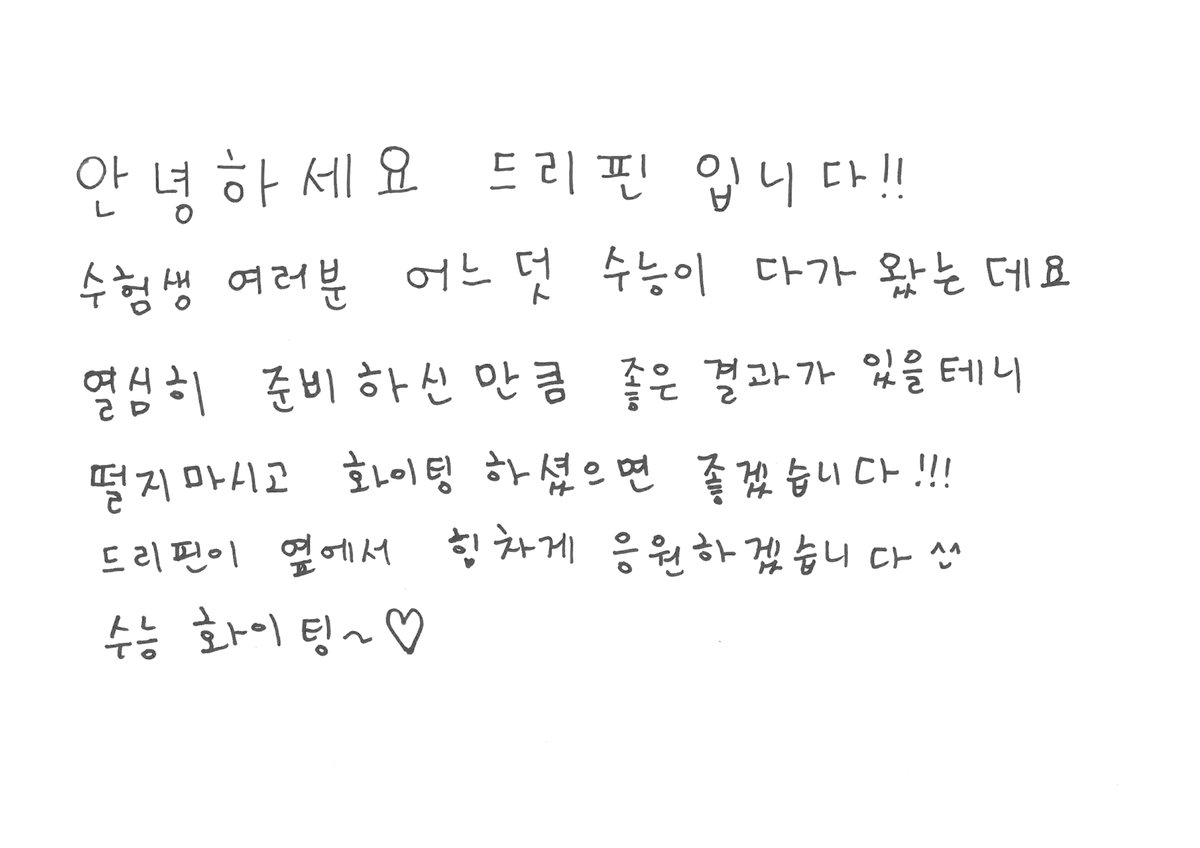 안녕하세요 드리핀 입니다!!
수험생 여러분 어느덧 수능이 다가 왔는데요
열심히 준비하신만큼 좋은 결과가 있을테니
떨지마시고 화이팅 하셨으면 좋겠습니다!!!
드리핀이 옆에서 힘차게 응원하겠습니다 ^^
수능 화이팅~♡